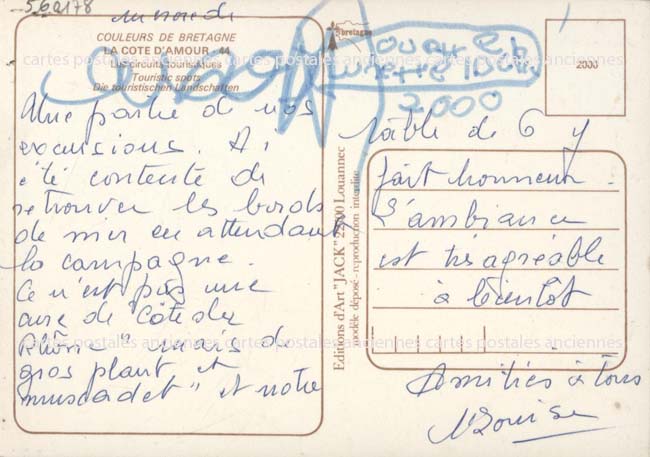 562178
mercredi
COULEURS DE BRETAGNE
LA COTE D'AMOUR - 44
Les circuits touristiques
Touristic spots
Die touristischen Landschaften
Une partie de nos
excursions. Ai
été contente de
retrouver les bords
de mer en attendant
la campagne.
Ce n'est pas une
cure de "Côtes du
Rhône" mais de
gros plant et
muscadet" et notre
bretagne
2000
2000
table de 6 y
fait honneur.
L'ambiance
est très agréable
à bientôt
Amitiés à tous
Louise
Editions d'Art "JACK" 22700 Louannec
modèle déposé - reproduction interdite
cartes postales anciennes cartes postales anciennes cartes postales anciennes
cartes postales anciennes cartes postales anciennes cartes postales anciennes